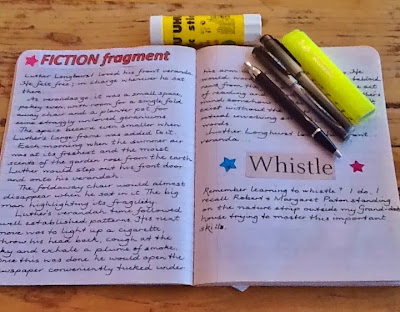 UHU
stic
FICTION fragment
Luther Longhurst loved his front veranda.
He felt free; in charge whenever he sat
there.
As verandas go, it was a small space,
pokey even, with room for a single fold
away chair and a flower pot for
some straggly coloured geraniums
The space became even smaller when
Luther's large frame was added to it.
Each morning when the summer air
was at its freshest and the moist
scents of the garden rose from the earth
Luther would step out his front door
and onto his verandah.
The foldaway chair would almost
disappear when he sat in it. The big
man highlighting its fragility.
Luther's verandah time followed
well established patterns. His next
move was to light up a cigarette,
throw his head back, cough at the
sky and exhale a plume of smoke.
Once this was done he would open the
newspaper conveniently tucked under
his arm
would
read from the
of
mind
brief
actual
Luther Longhurst loved his front
veranda.
Whistle
Remember learning to whistle? I do. I
recall Robert & Margaret Paton standing
on the nature strip outside my Grandma's
house trying to master this important
skill.